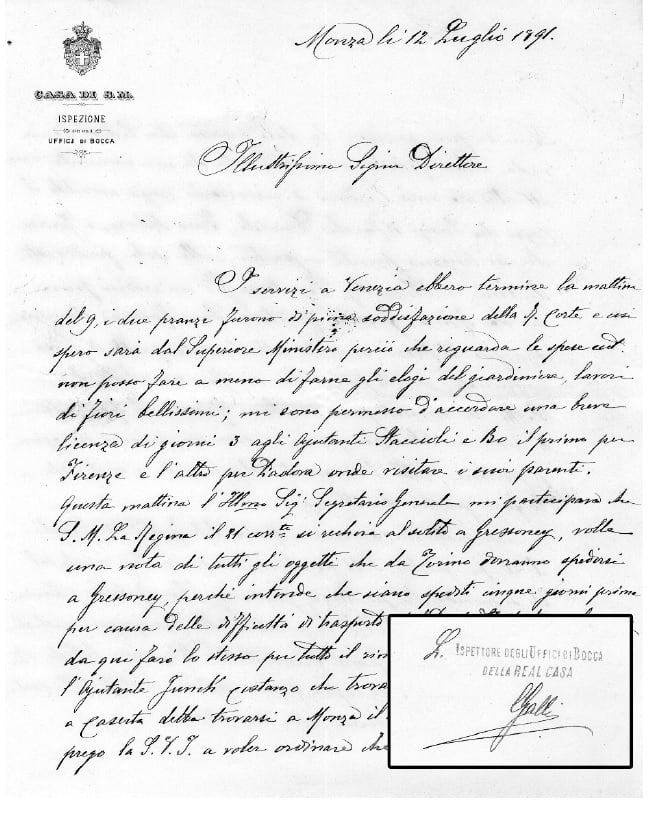 Monza li 12 Luglio 1891.
CASA DI S.M.
ISPEZIONE
UFFICI DI BOCCA
Illustrissimo Signor Direttore
I servizi a Venezia ebbero termine la mattina
del 9, i due pranzi furono di piena soddisfazione della R. Corte e così
spero sarà dal Superiore Ministero perciò che riguarda le spese ecc.
non posso fare a meno di farne gli elogi del giardiniere, lavori
di fiori bellissimi; mi sono permesso d'accordare una breve
licenza di giorni 3 agli Ajutanti Staccioli e Bo il primo per
Firenze e l'altro per Padova onde visitare i suoi parenti.
Questa mattina l'Illmo Sig. Segretario Generale mi partecipava che
S. M. La Regina il 21 corrte si recherà al solito a Gressoney, volle
una nota di tutti gli oggetti che da Torino dovranno spedirsi
a Gressoney, perchè intende che siano spediti cinque giorni prima
per causa delle difficoltà di trasporto
da qui farò lo stesso per tutto il
l'Ajutante Costanzo che
a Caserta debba trovarsi a Monza il
prego la S.V.I. a voler ordinare che
L. ISPETTORE DEGLI UFFICI DI BOCCA
DELLA REAL CASA
Galli